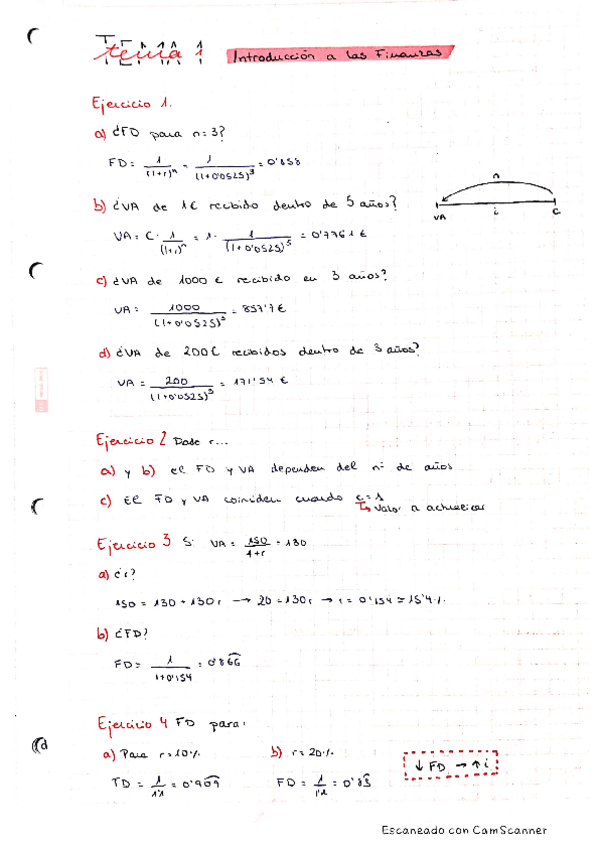 TEMA 1
tema 1 Introducción a las Finanzas
Ejercicio 1.
a) ¿FD para n=3?
FD = 1/(1+r)^n = 1/(1+0'0525)^3 = 0'858
b) ¿VA de 1€ recibido dentro de 5 años?
VA = C · 1/(1+r)^n = 1 · 1/(1+0'0525)^5 = 0'7761 €
n
VA i C
c) ¿VA de 1000 € recibido en 3 años?
VA = 1000/(1+0'0525)^3 = 857'7 €
d) ¿VA de 200€ recibidos dentro de 3 años?
VA = 200/(1+0'0525)^3 = 171'54 €
Ejercicio 2 Dado r...
a) y b) el FD y VA dependen del nº de años
c) El FD y VA coinciden cuando c=1
↳ Valor a actualizar
Ejercicio 3 Si VA = 150/1+r = 130
a) ¿r?
150 = 130 + 130r → 20 = 130r → r = 0'154 ≅ 15'4%
b) ¿FD?
FD = 1/1+0'154 = 0'866
Ejercicio 4 FD para:
a) Para r=10% b) r=20%
FD = 1/1'1 = 0'909 FD = 1/1'2 = 0'83
↓ FD → ↑ i
Escaneado con CamScanner